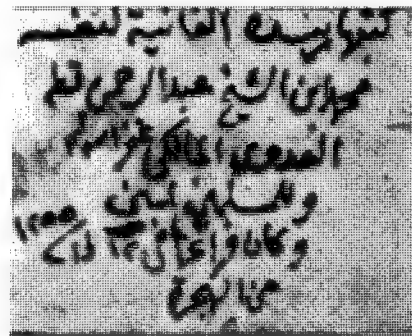 كتبها بيده الفانية لنفسه
محمد ابن الشيخ عبد الرحمن قطه
العدوى المالكى غفر الله له
وللمسلمين امين
وكان
من الهجرة